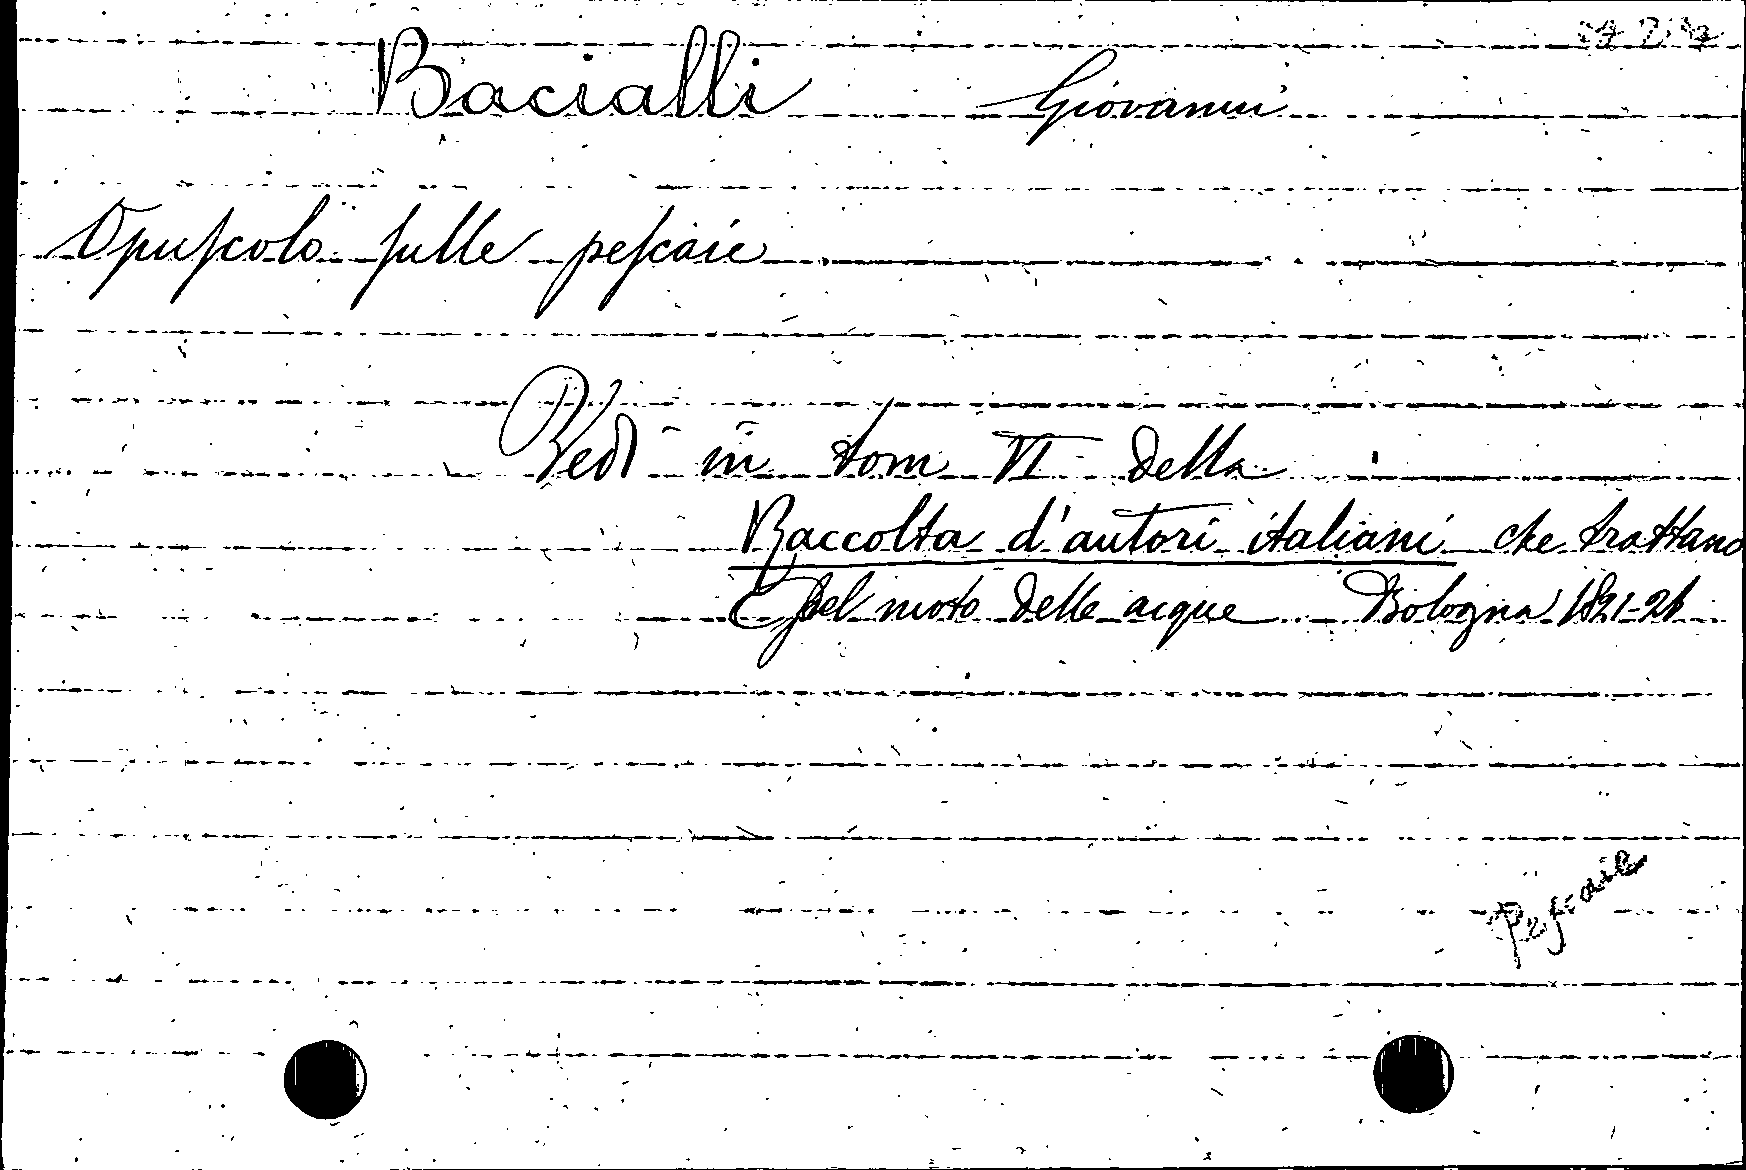 Bacialli Giovanni
Opuſcolo ſulle peſcaie
Vedi in tom VI della
Raccolta d'autori italiani che trattano
del moto delle acque Bologna 1821-26
Peſcaie